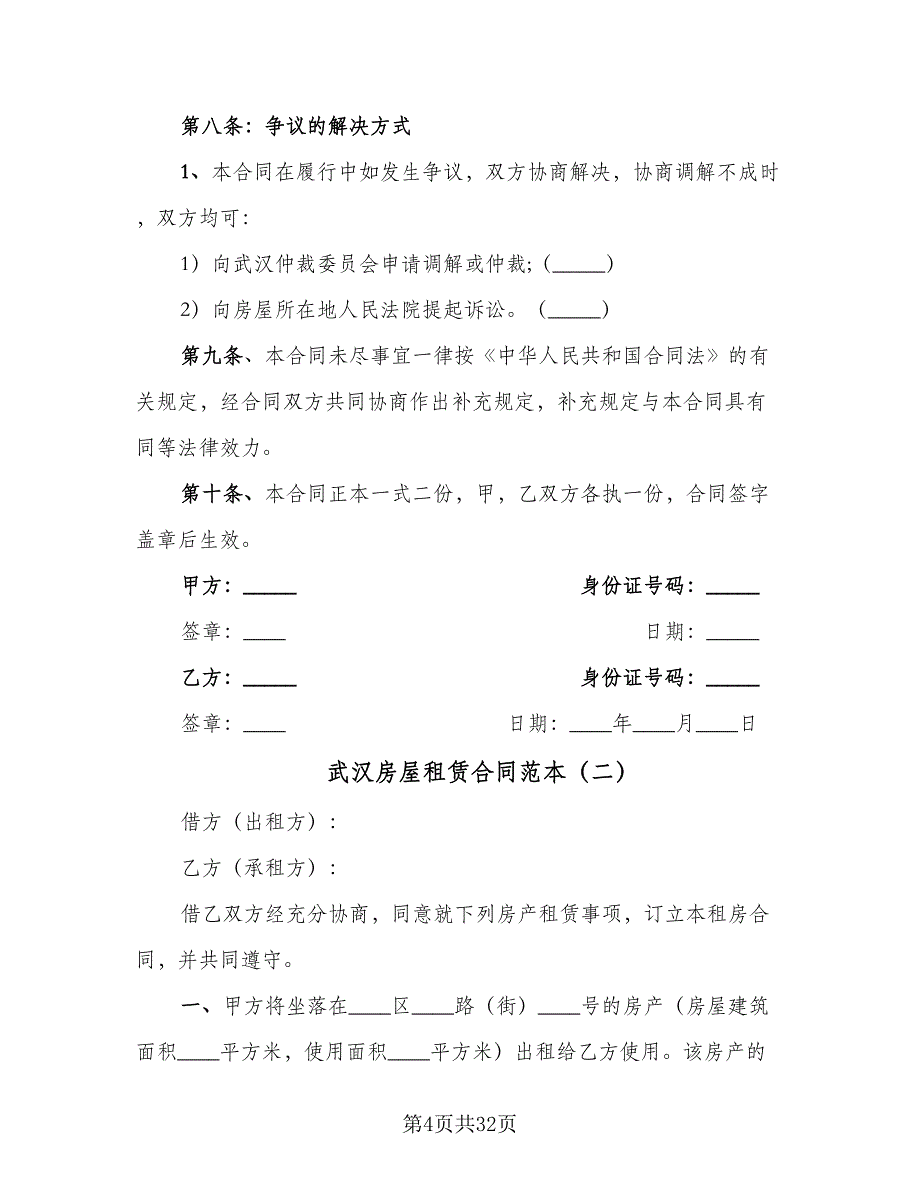 第八条：争议的解决方式
1、本合同在履行中如发生争议，双方协商解决，协商调解不成时
，双方均可：
1）向武汉仲裁委员会申请调解或仲裁；（_____）
2）向房屋所在地人民法院提起诉讼。（_____）
第九条、本合同未尽事宜一律按《中华人民共和国合同法》的有
关规定，经合同双方共同协商作出补充规定，补充规定与本合同具有
同等法律效力。
第十条、本合同正本一式二份，甲，乙双方各执一份，合同签字
盖章后生效。
甲方：_____ 身份证号码：_____
签章：____ 日期：_____
乙方：_____ 身份证号码：_____
签章：____ 日期：____年____月____日
武汉房屋租赁合同范本（二）
借方（出租方）：
乙方（承租方）：
借乙双方经充分协商，同意就下列房产租赁事项，订立本租房合
同，并共同遵守。
一、甲方将坐落在____区____路（街）____号的房产（房屋建筑
面积____平方米，使用面积____平方米）出租给乙方使用。该房产的
第4页共32页